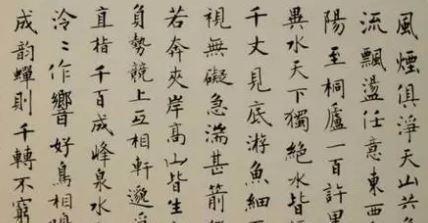 風煙俱淨天山共
流飄盪任意東西
陽至桐廬一百許里
異水天下獨絕水皆
千丈見底游魚細
視無礙急湍甚箭
若奔夾岸高山皆生
負勢競上互相軒邈
直指千百成峰泉水
泠〻作響好鳥相鳴
成韵蟬則千轉不窮